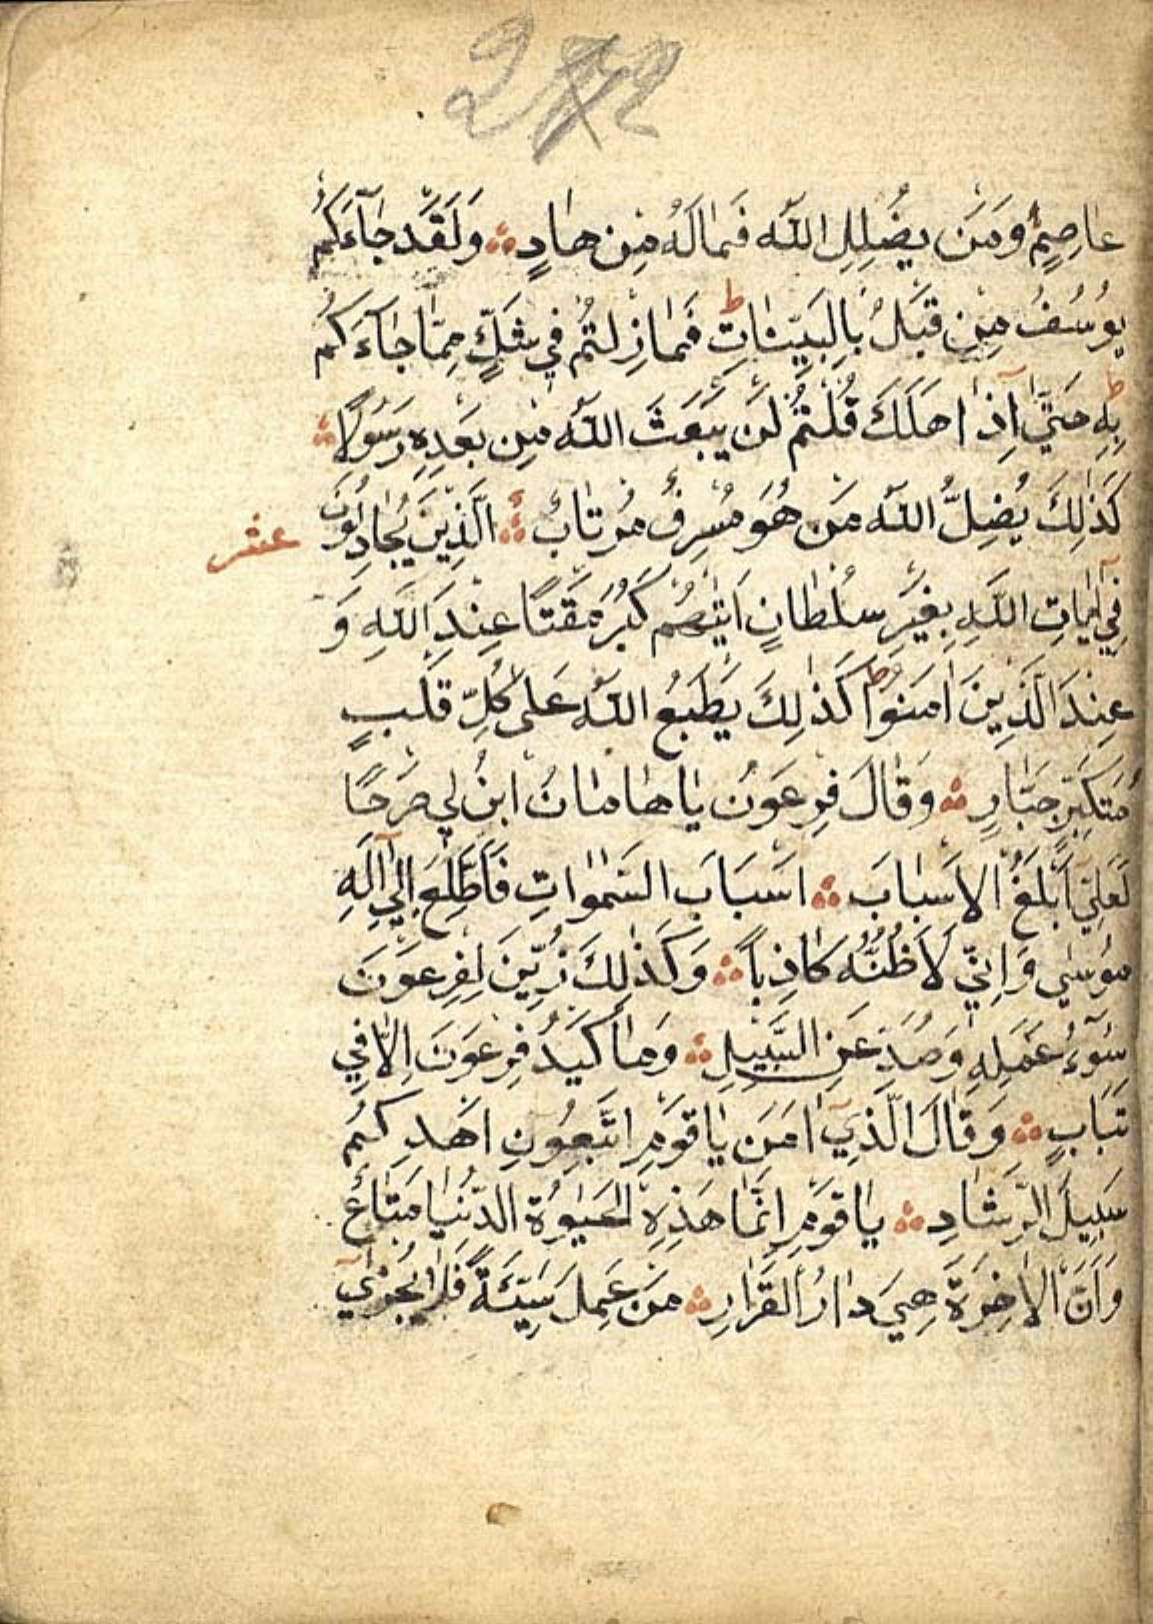 عَاصِمٍ وَمَنْ يُضْلِلِ اللّٰهُ فَمَا لَهُ مِنْ هَادٍ ۞ وَلَقَدْ جَآءَكُمْ
يُوسُفُ مِنْ قَبْلُ بِالْبَيِّنَاتِ ط فَمَا زِلْتُمْ فِي شَكٍّ مِمَّا جَآءَكُمْ
بِهِ ط حَتّٰٓى اِذَا هَلَكَ قُلْتُمْ لَنْ يَبْعَثَ اللّٰهُ مِنْ بَعْدِهِ رَسُولًا ۞
كَذٰلِكَ يُضِلُّ اللّٰهُ مَنْ هُوَ مُسْرِفٌ مُرْتَابٌ ۞ اَلَّذِينَ يُجَادِلُونَ عشر
فِٓي اٰيَاتِ اللّٰهِ بِغَيْرِ سُلْطَانٍ اَتٰيهُمْ كَبُرَ مَقْتًا عِنْدَ اللّٰهِ وَ
عِنْدَ الَّذِينَ اٰمَنُوا ط كَذٰلِكَ يَطْبَعُ اللّٰهُ عَلٰى كُلِّ قَلْبِ
مُتَكَبِّرٍ جَبَّارٍ ۞ وَقَالَ فِرْعَوْنُ يَا هَامَانُ ابْنِ لِي صَرْحًا
لَعَلِّٓي اَبْلُغُ الْاَسْبَابَ ۞ اَسْبَابَ السَّمٰوَاتِ فَاَطَّلِعَ اِلٰٓى اِلٰهِ
مُوسٰى وَاِنِّي لَاَظُنُّهُ كَاذِبًا ۞ وَكَذٰلِكَ زُيِّنَ لِفِرْعَوْنَ
سُوٓءُ عَمَلِهِ وَصُدَّ عَنِ السَّبِيلِ ۞ وَمَا كَيْدُ فِرْعَوْنَ اِلَّا فِي
تَبَابٍ ۞ وَقَالَ الَّذِٓي اٰمَنَ يَا قَوْمِ اتَّبِعُونِ اَهْدِكُمْ
سَبِيلَ الرَّشَادِ ۞ يَا قَوْمِ اِنَّمَا هٰذِهِ الْحَيٰوةُ الدُّنْيَا مَتَاعٌ
وَاِنَّ الْاٰخِرَةَ هِيَ دَارُ الْقَرَارِ ۞ مَنْ عَمِلَ سَيِّئَةً فَلَا يُجْزٰٓى